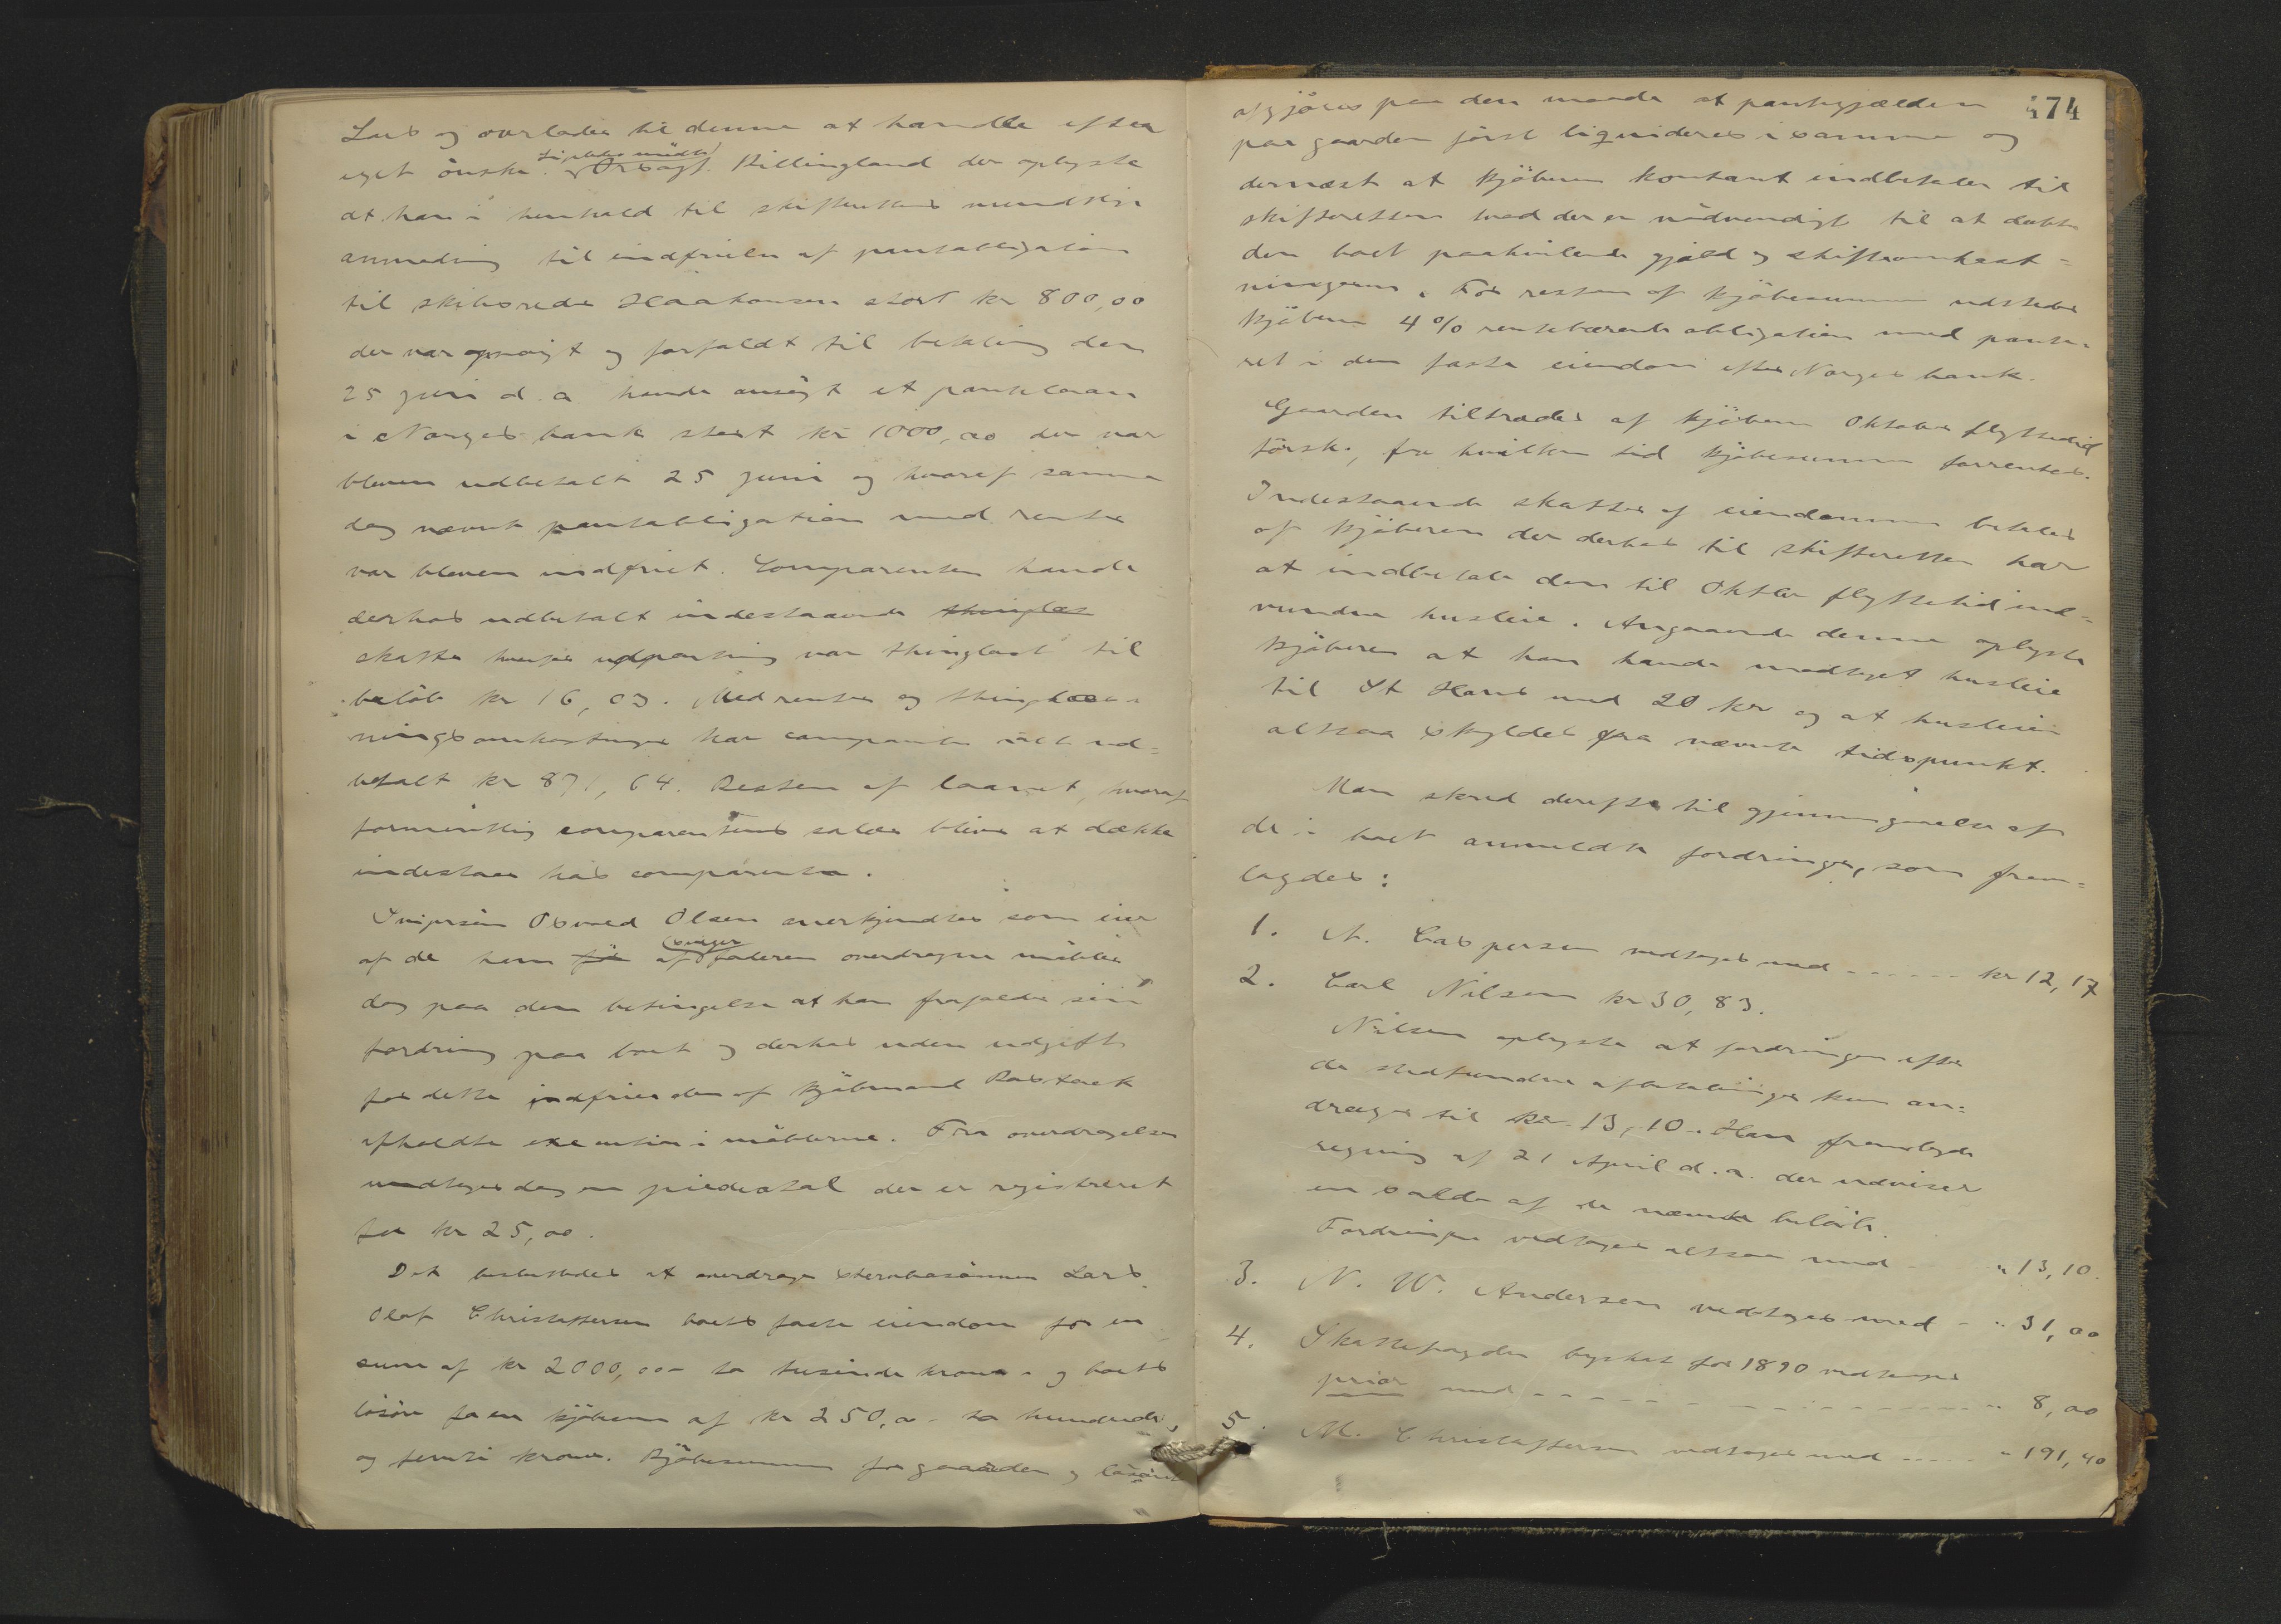 Lars og overlades til denne at handle efter
eget ønske. Ligeledes mødte Orsagf. Killingland der oplyste
at han i henhold til skifterettens mundtlige
anmodning til indfrielse af pantobligation
til skibsreder Haakonsen stort kr 800,00
der var opsagt og forfaldt til betaling den
25 juni d. a havde ansøgt et pantelaan
i Norges bank stort kr 1000,00 der var
bleven udbetalt 25 juni og hvoraf samme
dag nævnte pantobligation med renter
var bleven indfriet. Comparenten havde
derhos udbetalt indestaaende thinglæs
skatter hvorfor udpantning var thinglæst til
beløb kr 16,03. Med renter og thinglæs-
ningsomkostninger har comparenten ialt ud=
betalt kr 871,64. Resten af laanet, hvoraf
formentlig comparentens salær bliver at dække
indestaar hos comparenten.
Inspersøn Osvald Olsen anerkjendtes som eier
af de ham før af faderen overdragne møbler
dog paa den betingelse at han frafalder sin
fordring paa boet og derhos uden udgift
for dette indfrier den af kjøbmand
afholdte execution i møblerne. Fra overdragelsen
undtages dog en piedestal der er registreret
for kr 25,00.
Det besluttedes at overdrage stervbosønnen Lars
Olaf Christoffersen boets faste eiendom for en
sum af kr 2000,00 – to tusinde kroner – og boets
løsøre for en kjøbesum af kr 250,00 – to hundrede
og femti kroner. Kjøbesummen for gaarden og løsøret
474
afgjøres paa den maade at pantegjælden
paa gaarden først liqvideres i samme og
dernæst at kjøberen kontant indbetaler til
skifteretten hvad der er nødvendigt til at dække
den boet paahvilende gjæld og skifteomkost=
ningerne. For resten af kjøbesummen udsteder
kjøberen 4 % rentebærende obligation med pante=
ret i den faste eiendom efter Norges bank.
Gaarden tiltrædes af kjøberen Oktober flyttetid
førstk., fra hvilken tid kjøbesummen forrentes.
Indestaaende skatter af eiendommen betales
af kjøberen der derhos til skifteretten har
at indbetale den til Oktbr flyttetid ind=
vundne husleie. Angaaende denne oplyste
kjøberen at han havde modtaget husleie
til St Hans med 20 kr og at husleien
altsaa skyldes fra nævnte tidspunkt.
Man skred derefter til gjennemgaaelse af
de i boet anmeldte fordringer, som frem=
lagdes:
1. A. Caspersen vedtages med - - - - - - kr 12,17
2. Carl Nilsen kr 30,83.
Nilsen oplyste at fordringen efter
de stedfundne afbetalinger kun an=
drager til kr 13,10. Han fremlagde
regning af 21 April d. a. der udviser
en saldo af de nævnte beløb.
Fordringen vedtages altsaa med " 13,10.
3. N. W. Andersen vedtages med - " 31,00
4. Skattefogden byskat for 1890 vedtages
prior med - - - - - - - - - - - - " 8,00
5. M. Christoffersen vedtages med - - - - - " 191,40